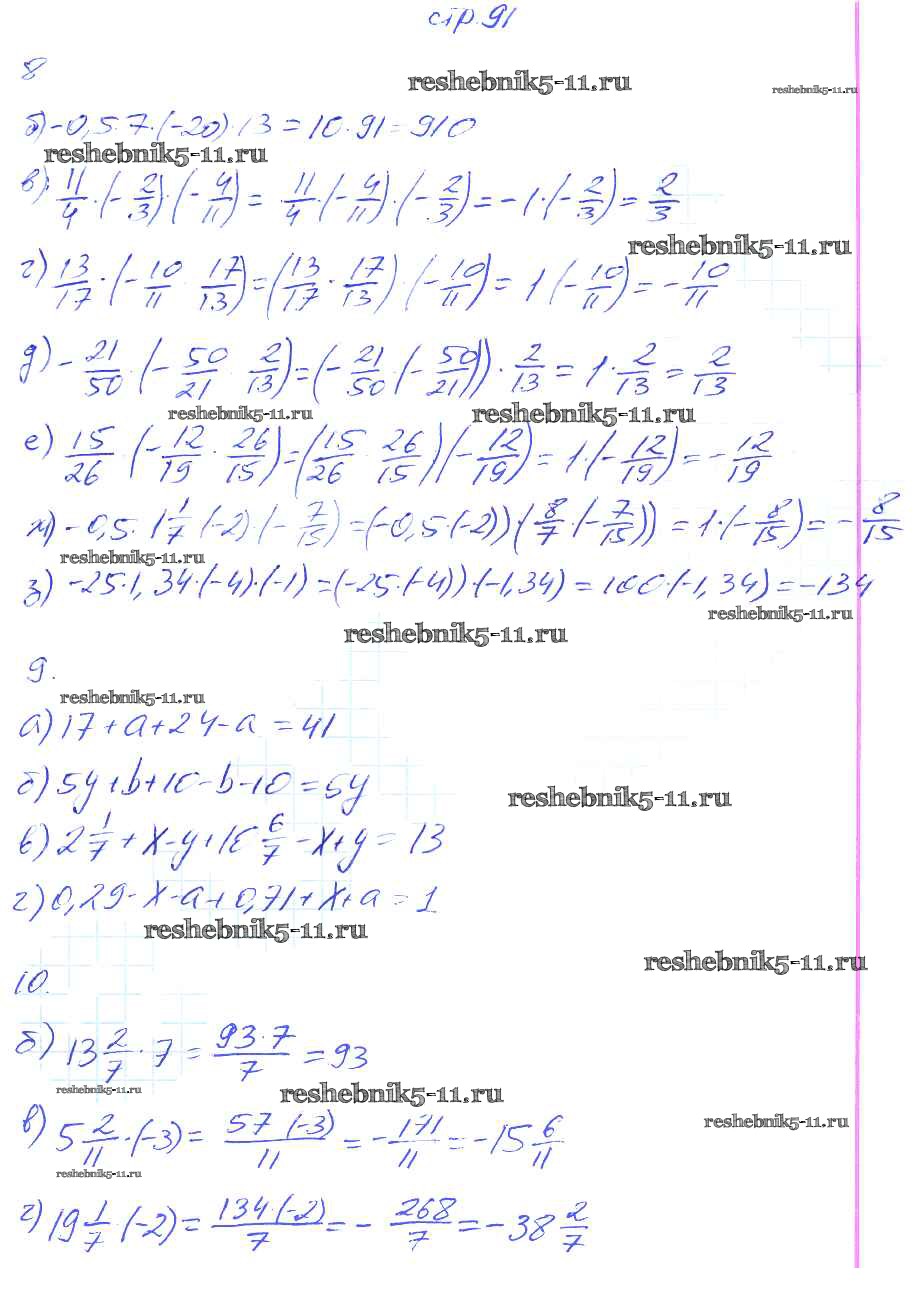 стр. 91
8
reshebnik5-11.ru
reshebnik5-11.ru
б) -0,5·7·(-20)·13 = 10·91 = 910
reshebnik5-11.ru
в) 11/4·(-2/3)·(-4/11) = 11/4·(-4/11)·(-2/3) = -1·(-2/3) = 2/3
reshebnik5-11.ru
г) 13/17·(-10/11·17/13) = (13/17·17/13)·(-10/11) = 1(-10/11) = -10/11
д) -21/50·(-50/21·2/13) = (-21/50(-50/21))·2/13 = 1·2/13 = 2/13
reshebnik5-11.ru reshebnik5-11.ru
е) 15/26·(-12/19·26/15) = (15/26·26/15)(-12/19) = 1·(-12/19) = -12/19
ж) -0,5·1 1/7·(-2)·(-7/15) = (-0,5·(-2))·(8/7·(-7/15)) = 1·(-8/15) = -8/15
reshebnik5-11.ru
з) -25·1,34·(-4)·(-1) = (-25·(-4))·(-1,34) = 100·(-1,34) = -134
reshebnik5-11.ru
reshebnik5-11.ru
9.
reshebnik5-11.ru
а) 17+a+24-a = 41
б) 5y+b+10-b-10 = 5y
reshebnik5-11.ru
в) 2 1/7+x-y+10 6/7-x+y = 13
г) 0,29-x-a+0,71+x+a = 1
reshebnik5-11.ru
reshebnik5-11.ru
10.
б) 13 2/7·7 = 93·7/7 = 93
reshebnik5-11.ru
reshebnik5-11.ru
в) 5 2/11·(-3) = 57·(-3)/11 = -171/11 = -15 6/11
reshebnik5-11.ru
reshebnik5-11.ru
г) 19 1/7·(-2) = 134·(-2)/7 = -268/7 = -38 2/7